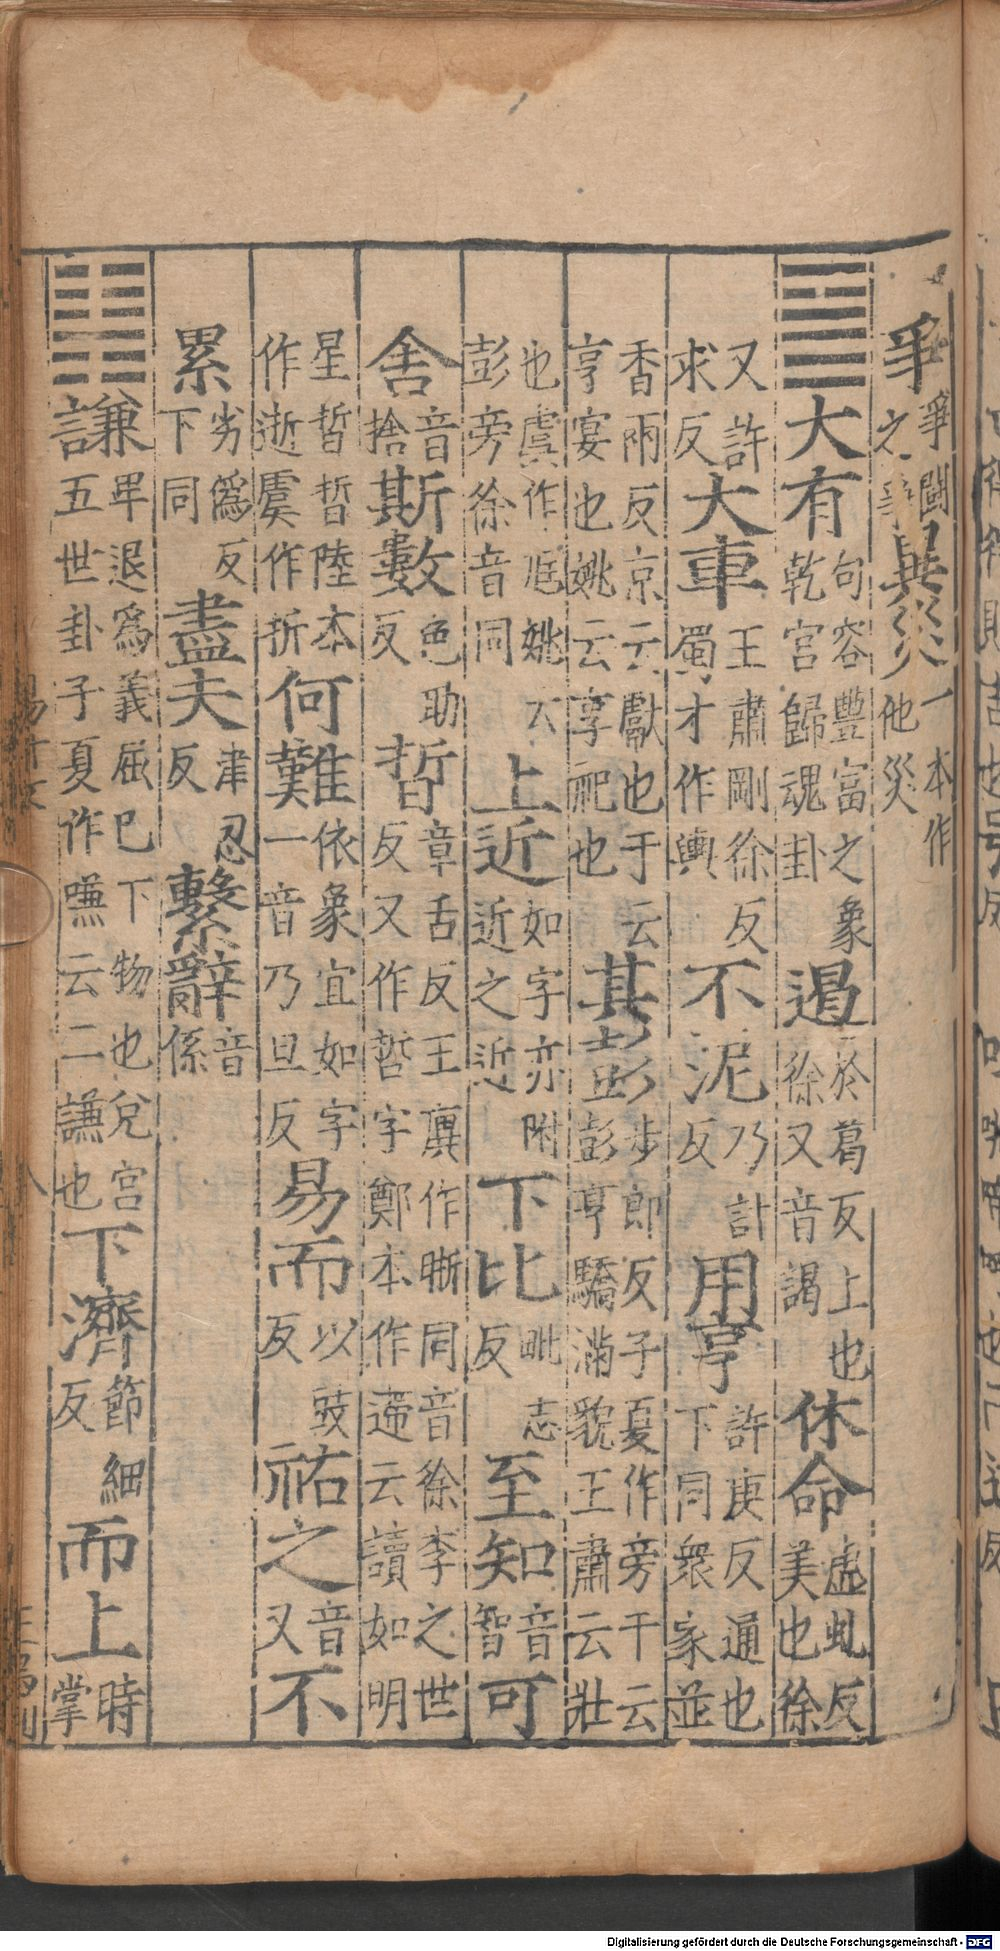 爭爭鬭之爭異災一本作他災
大有句容豐富之象乾宮歸魂卦遏於葛反徐又音謁上也休命虛虬反美也徐
又許求反大車王肅剛徐反蜀才作輿不泥乃計反用亨許庚反通也下同衆家並
香兩反京云獻也于云亨宴也姚云享祀也其彭步郎反子夏作旁干云彭亨驕滿貌王肅云壯
也虞作尪姚云彭旁徐音同上近如字亦附近之近下比毗志反至知音智可
舍音捨斯數色助反晢章舌反王廙作晣同音徐李之世反又作哲字鄭本作遰云讀如明
星晢晢陸本作逝虞作折何難依象宜如字一音乃旦反易而以豉反祐之音又不
累劣僞反下同盡夫津忍反繫辭音係
謙卑退爲義屈已下物也兌宮五世卦子夏作嗛云二謙也下濟節細反而上時掌
Digitalisierung gefördert durch die Deutsche Forschungsgemeinschaft - DFG